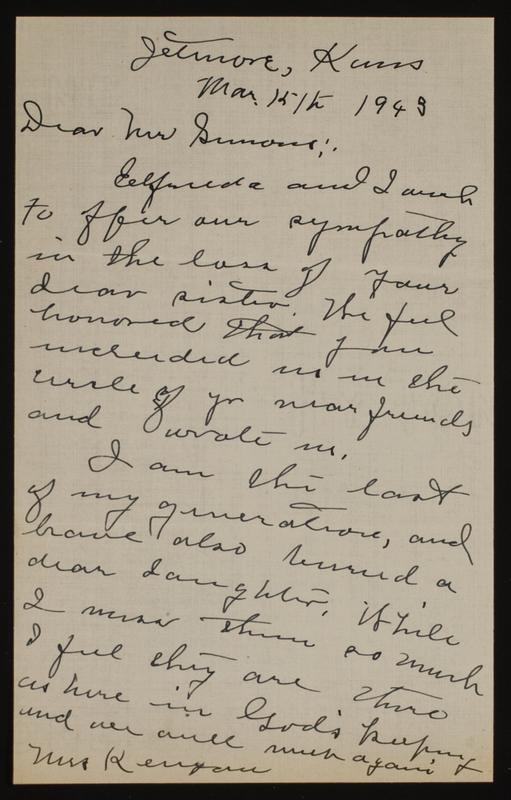 Jetmore, Kans
Mar. 15/th 1943
Dear Mr Simons;
Elfrieda and I wish
to offer our sympathy
in the loss of your
dear sister. We feel
honored that you
included us in the
circle of yr near friends
and wrote us.
I am the last
of my generation, and
have also buried a
dear daughter. While
I miss them so much
I feel they are there
as here in God's keeping
and we will meet again
Mrs